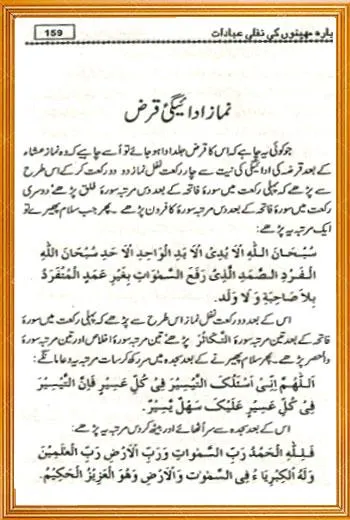 بارہ مہینوں کی نفلی عبادات
159
نماز ادائیگئ قرض
جو کوئی یہ چاہے کہ اس کا قرض جلد ادا ہو جائے تو اُسے چاہیے کہ وہ نماز عشاء
کے بعد قرضہ کی ادائیگی کی نیت سے چار رکعت نفل نماز دو دو رکعت کر کے اس طرح
سے پڑھے کہ پہلی رکعت میں سورۂ فاتحہ کے بعد دس مرتبہ سورۂ فلق پڑھے دوسری
رکعت میں سورۂ فاتحہ کے بعد دس مرتبہ سورۂ کافرون پڑھے۔ پھر جب سلام پھیرے تو
ایک مرتبہ یہ پڑھے:
سُبْحَانَ اللّٰهِ الْاَ بَدِیِّ الْاَ بَدِ الْوَاحِدِ الْاَ حَدِ سُبْحَانَ اللّٰهِ
الْفَرْدِ الصَّمَدِ الَّذِیْ رَفَعَ السَّمٰوٰتِ بِغَيْرِ عَمَدٍ الْمُتَفَرِّدِ
بِلَا صَاحِبَةٍ وَّ لَا وَلَدٍ.
اس کے بعد دو رکعت نفل نماز اس طرح سے پڑھے کہ پہلی رکعت میں سورۂ
فاتحہ کے بعد تین مرتبہ سورۃ التَّكَاثُرُ پڑھے تین مرتبہ سورۂ اخلاص اور تین مرتبہ سورۂ
والعصر پڑھے۔ پھر سلام پھیرنے کے بعد سجدہ میں سر رکھ کر سات مرتبہ یہ دعا مانگے:
اَللّٰهُمَّ اِنِّیْ اَسْئَلُكَ التَّيْسِيْرَ فِیْ كُلِّ عَسِيْرٍ فَاِنَّ التَّيْسِيْرَ
فِیْ كُلِّ عَسِيْرٍ عَلَيْكَ سَهْلٌ يَّسِيْرٌ.
اس کے بعد سجدہ سے سر اُٹھائے اور بیٹھ کر دس مرتبہ یہ پڑھے:
فَلِلّٰهِ الْحَمْدُ رَبِّ السَّمٰوٰتِ وَرَبِّ الْاَرْضِ رَبِّ الْعٰلَمِيْنَ
وَلَهُ الْكِبْرِيَآءُ فِی السَّمٰوٰتِ وَالْاَرْضِ وَهُوَ الْعَزِيْزُ الْحَكِيْمُ.